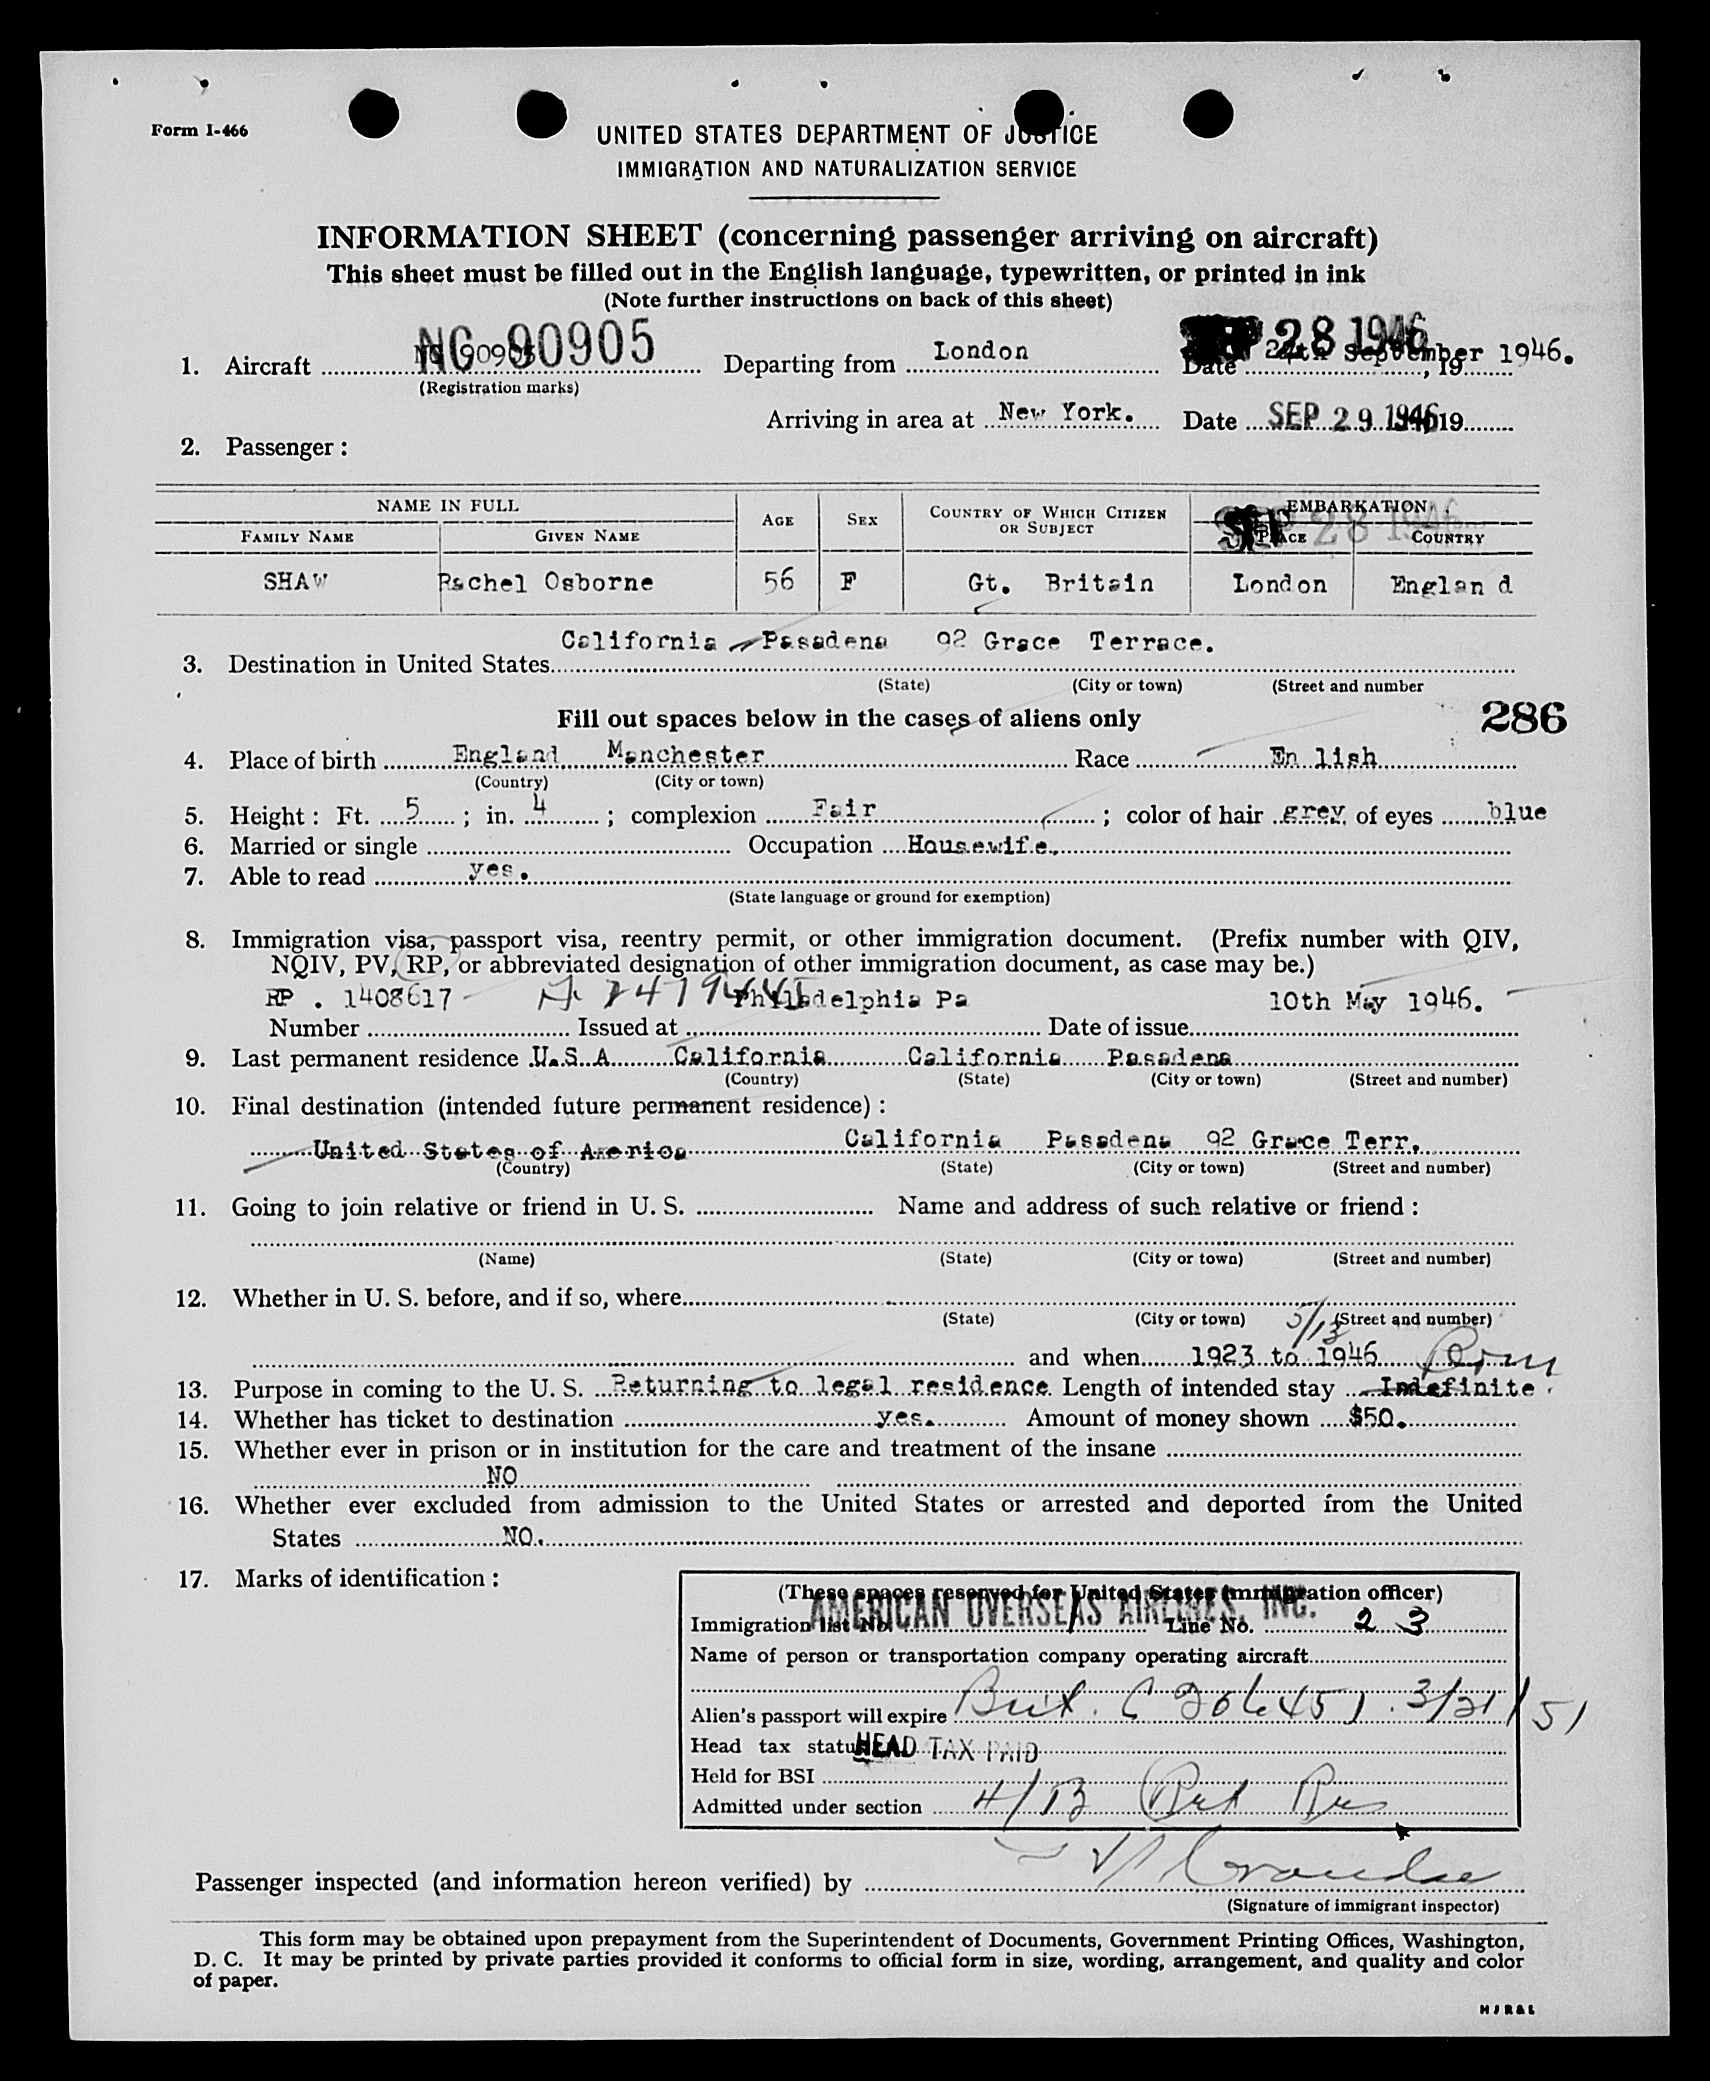 Form I-466
UNITED STATES DEPARTMENT OF JUSTICE
IMMIGRATION AND NATURALIZATION SERVICE
INFORMATION SHEET (concerning passenger arriving on aircraft)
This sheet must be filled out in the English language, typewritten, or printed in ink
(Note further instructions on back of this sheet)
1. Aircraft NC 90905 Departing from London Date SEP 28 1946 24th September 1946. , 19
(Registration marks)
Arriving in area at New York. Date SEP 29 1946 19
2. Passenger :
NAME IN FULL AGE SEX COUNTRY OF WHICH CITIZEN OR SUBJECT EMBARKATION SEP 28 1946
FAMILY NAME GIVEN NAME PLACE COUNTRY
SHAW Rachel Osborne 56 F Gt. Britain London Englan d
California Pasadena 92 Grace Terrace.
3. Destination in United States
(State) (City or town) (Street and number
Fill out spaces below in the cases of aliens only 286
4. Place of birth England Manchester Race En lish
(Country) (City or town)
5. Height : Ft. 5 ; in. 4 ; complexion Fair ; color of hair grey of eyes blue
6. Married or single Occupation Housewife.
7. Able to read yes.
(State language or ground for exemption)
8. Immigration visa, passport visa, reentry permit, or other immigration document. (Prefix number with QIV,
NQIV, PV, RP, or abbreviated designation of other immigration document, as case may be.)
RP . 1408617 Philadelphia Pa 10th May 1946.
Number Issued at Date of issue
9. Last permanent residence U.S.A California California Pasadena
(Country) (State) (City or town) (Street and number)
10. Final destination (intended future permanent residence) :
United States of America California Pasadena 92 Grace Terr.
(Country) (State) (City or town) (Street and number)
11. Going to join relative or friend in U. S. Name and address of such relative or friend :
(Name) (State) (City or town) (Street and number)
12. Whether in U. S. before, and if so, where
(State) (City or town) 5/13 (Street and number)
and when 1923 to 1946
13. Purpose in coming to the U. S. Returning to legal residence Length of intended stay Indefinite.
14. Whether has ticket to destination yes. Amount of money shown $50.
15. Whether ever in prison or in institution for the care and treatment of the insane
NO
16. Whether ever excluded from admission to the United States or arrested and deported from the United
States NO.
17. Marks of identification :
(These spaces reserved for United States immigration officer)
AMERICAN OVERSEAS AIRLINES, INC.
Immigration list No. Line No. 2 3
Name of person or transportation company operating aircraft
Alien's passport will expire Brit. C 206451 . 3/21/51
Head tax status HEAD TAX PAID
Held for BSI
Admitted under section 4/B
Passenger inspected (and information hereon verified) by
(Signature of immigrant inspector)
This form may be obtained upon prepayment from the Superintendent of Documents, Government Printing Offices, Washington,
D. C. It may be printed by private parties provided it conforms to official form in size, wording, arrangement, and quality and color
of paper.